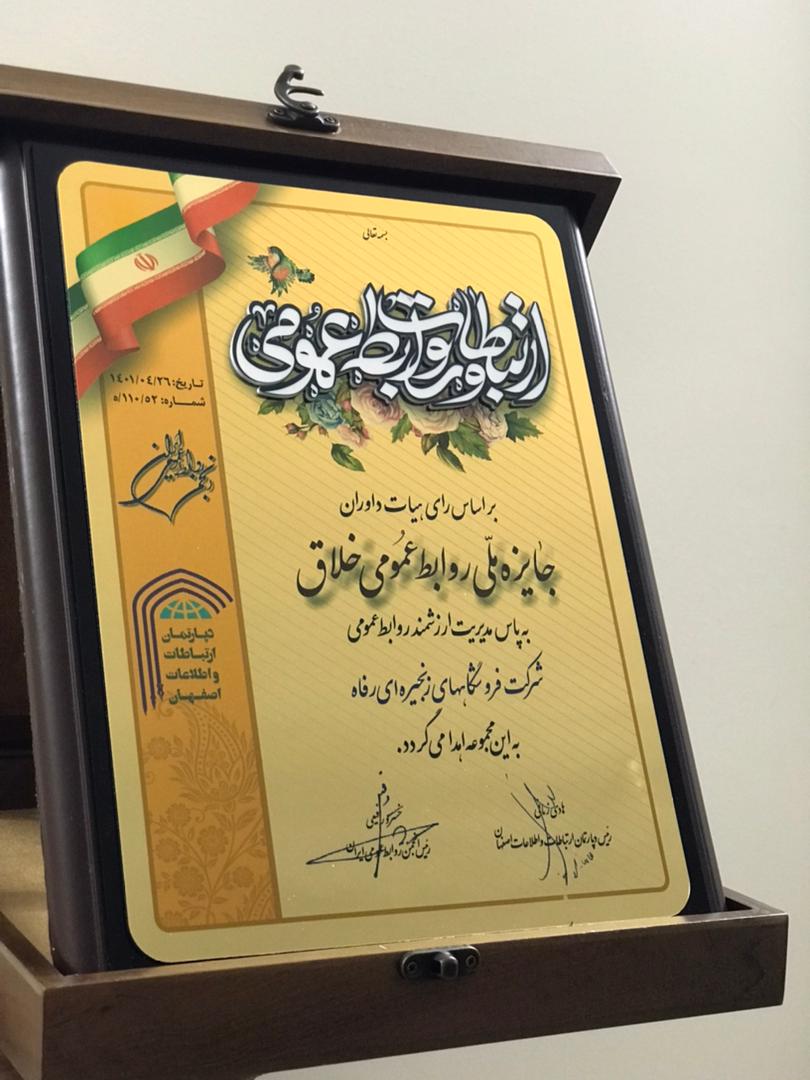 بسمه تعالی
ارتباطات و روابط عمومی
تاریخ: ۱۴۰۱/۰۴/۲۶
شماره: ۵/۱۱۰/۵۲
انجمن روابط عمومی ایران
دپارتمان
ارتباطات
و اطلاعات
اصفهان
بر اساس رای هیات داوران
جایزه ملّی روابط عمومی خلاق
به پاس مدیریت ارزشمند روابط عمومی
شرکت فروشگاههای زنجیره ای رفاه
به این مجموعه اهدا می گردد.
هادی
رئیس دپارتمان ارتباطات و اطلاعات اصفهان
خسرو رفیعی
رئیس انجمن روابط عمومی ایران